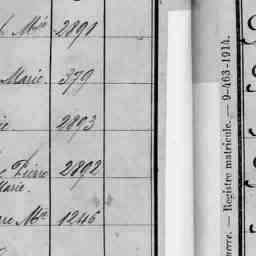 Mie 2891
Marie. 379
ie 2893
Pierre 2892
Marie.
re Mie 1246
uerre. — Registre matricule. — 9-463-1914.